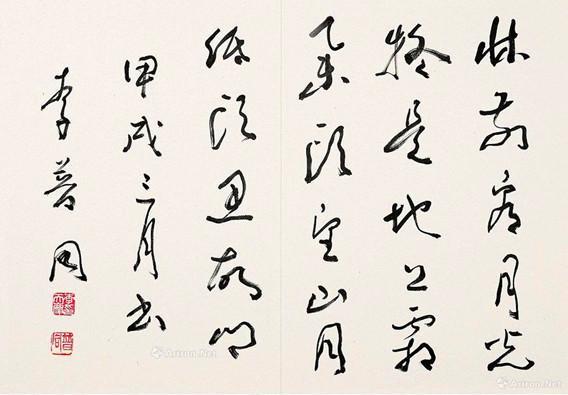 牀前看月光
疑是地上霜
舉頭望山月
低頭思故鄉
甲戌三月書
李普同
Artron.Net
Artron.Net